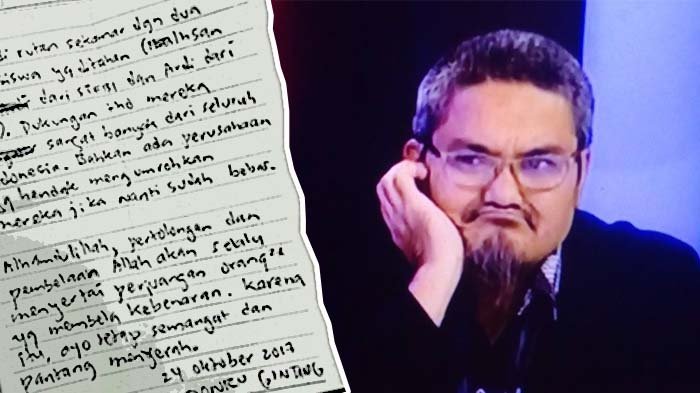 di rutan sekamar dgn dua
siswa yg ditahan (Ihsan
dari STEBI dan Ardi dari
). Dukungan thd mereka
sangat banyak dari seluruh
donesia. Bahkan ada perusahaan
yg hendak mengumrohkan
mereka jika nanti sudah bebas.
Alhamdulillah, pertolongan dan
pembelaan Allah akan selalu
menyertai perjuangan orang2
yg membela kebenaran. Karena
itu, ayo tetap semangat dan
pantang menyerah.
24 Oktober 2017
GINTING